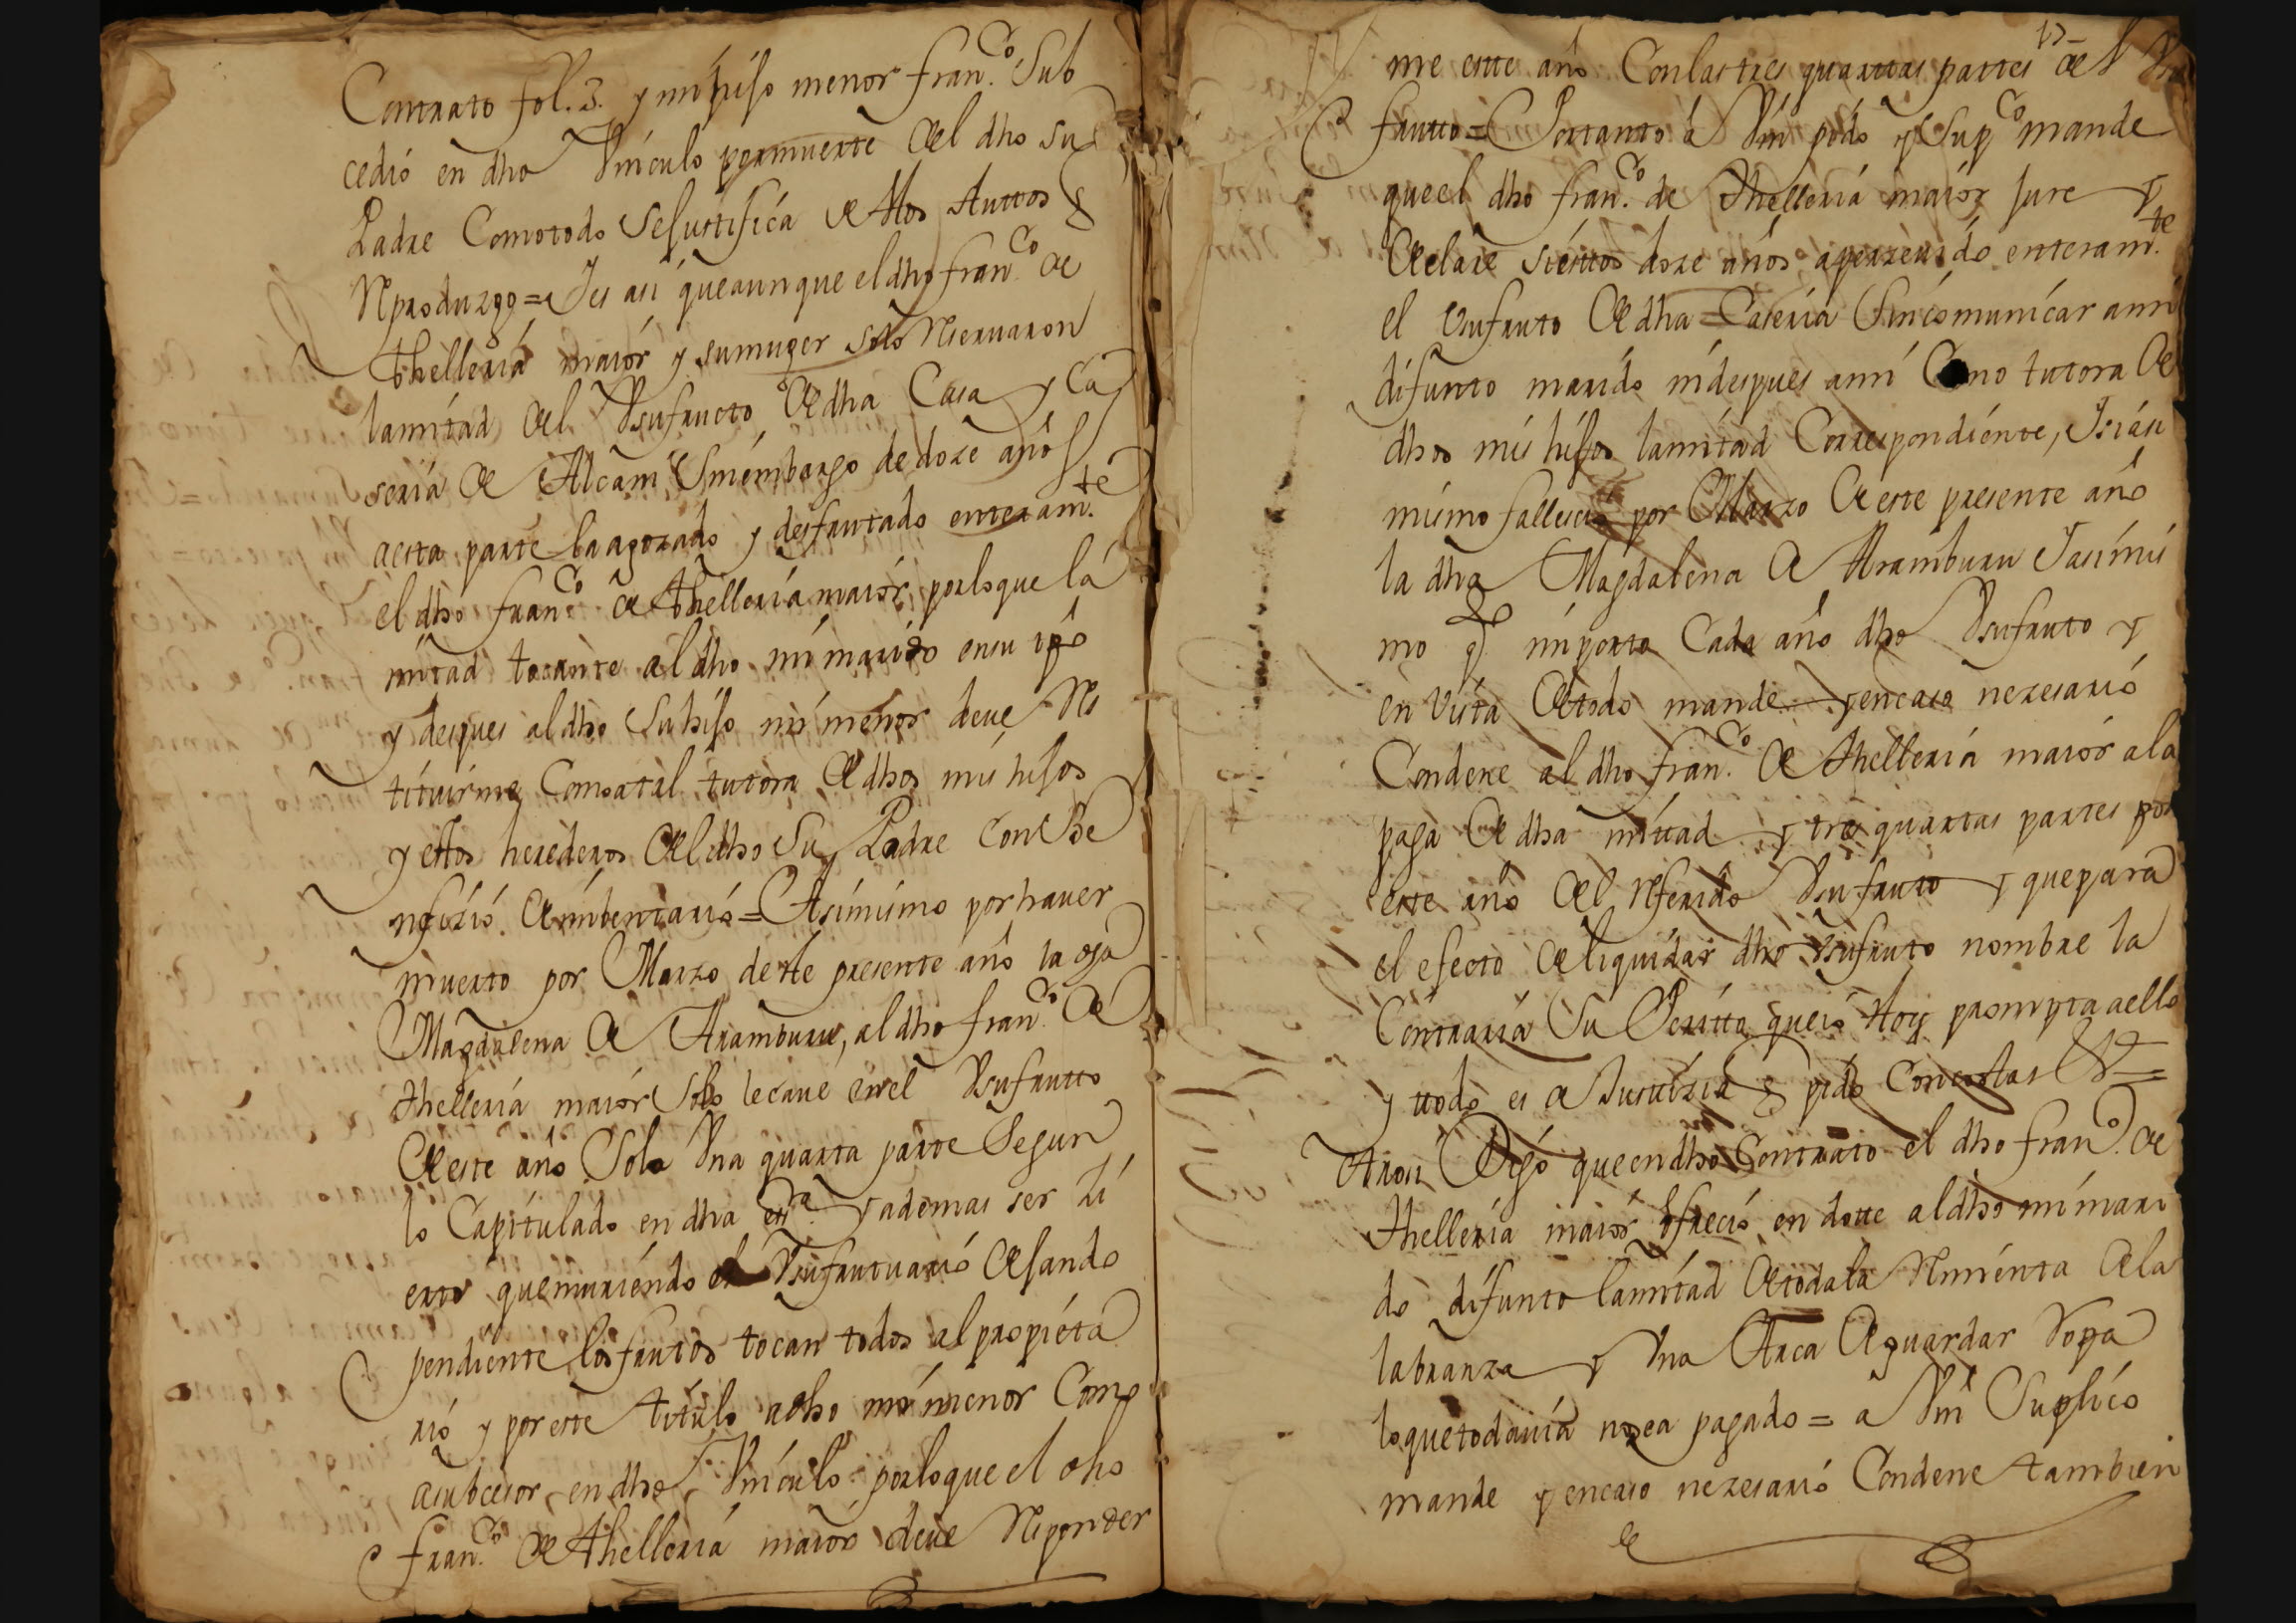 Contrato fol. 3. y mi hiJo menor fran.co Sub
cedió en dho Vinculo por muerte del dho su
Padre Como todo se Justifica de estos Auttos q
Reproduzgo = Y es asi que aunque el dho fran.co de
Athelleria maior y su muger solo Reseruaron
la mitad del Vsufructo de dha Casa y Ca
seria de Alcani Sin embargo de doze años
a esta parte la a gozado y desfrutado enteram.te
el dho fran.co de Athelleria maior por lo que la
mitad tocante al dho mi marido en su tpo
y despues al dho su hiJo mi menor deue Res
tituirme Como a tal tutora de dhos mis hiJos
y estos herederos del dho Su Padre Con Be
nefizio de imbentario = Asimismo por hauer
muerto por Marzo de este presente año la dha
Magdalena de Aramburu, al dho fran.co de
Athelleria maior solo le caue en el Vsufrutto
de este año Sola Vna quarta parte Segun
lo Capitulado en dha ess.ra y ademas ser Zi
erto que muriendo el Vsufrutuario deJando
pendiente los frutos tocan todos al propieta
rio y por este titulo a dho mi menor Como
a subcesor en dho Vinculo por lo que el dho
fran.co de Athelleria maior deue Responder
17
me este año Con las tres quarttas partes del Vsu
frutto = Por tanto a Vm pido y Sup.co mande
que el dho fran.co de Athelleria maior Jure y
declare si estos doze años a perzeuido enteram.te
el Vsufruto de dha Caseria Sin comunicar a mi
difunto marido ni despues a mi Como tutora de
dhos mis hiJos la mitad Correspondiente, Y si asi
mismo fallescio por Marzo de este presente año
la dha Magdalena de Aramburu Y asimis
mo q.do importa Cada año dho Vsufruto y
en Vista de todo mande y en caso nezesario
Condene al dho fran.co de Athelleria maior a la
paga de dha mittad y tres quartas partes por
este año del Referido Vsufruto y que para
el efecto de liquidar dho Vsufruto nombre la
Contraria Su Peritto que io estoy prompta a ello
y ttodo es de Justizia q pido Con costas &.a =
Otrosi Digo que en dho Contrato el dho fran.co de
Athelleria maior ofrecio en dotte al dho mi mari
do difunto la mitad de toda la Rimienta de la
labranza y Vna Arca de guardar Ropa
lo que todauia no se a pagado = a Vm Suplico
mande y en caso nezesario Condene tambien